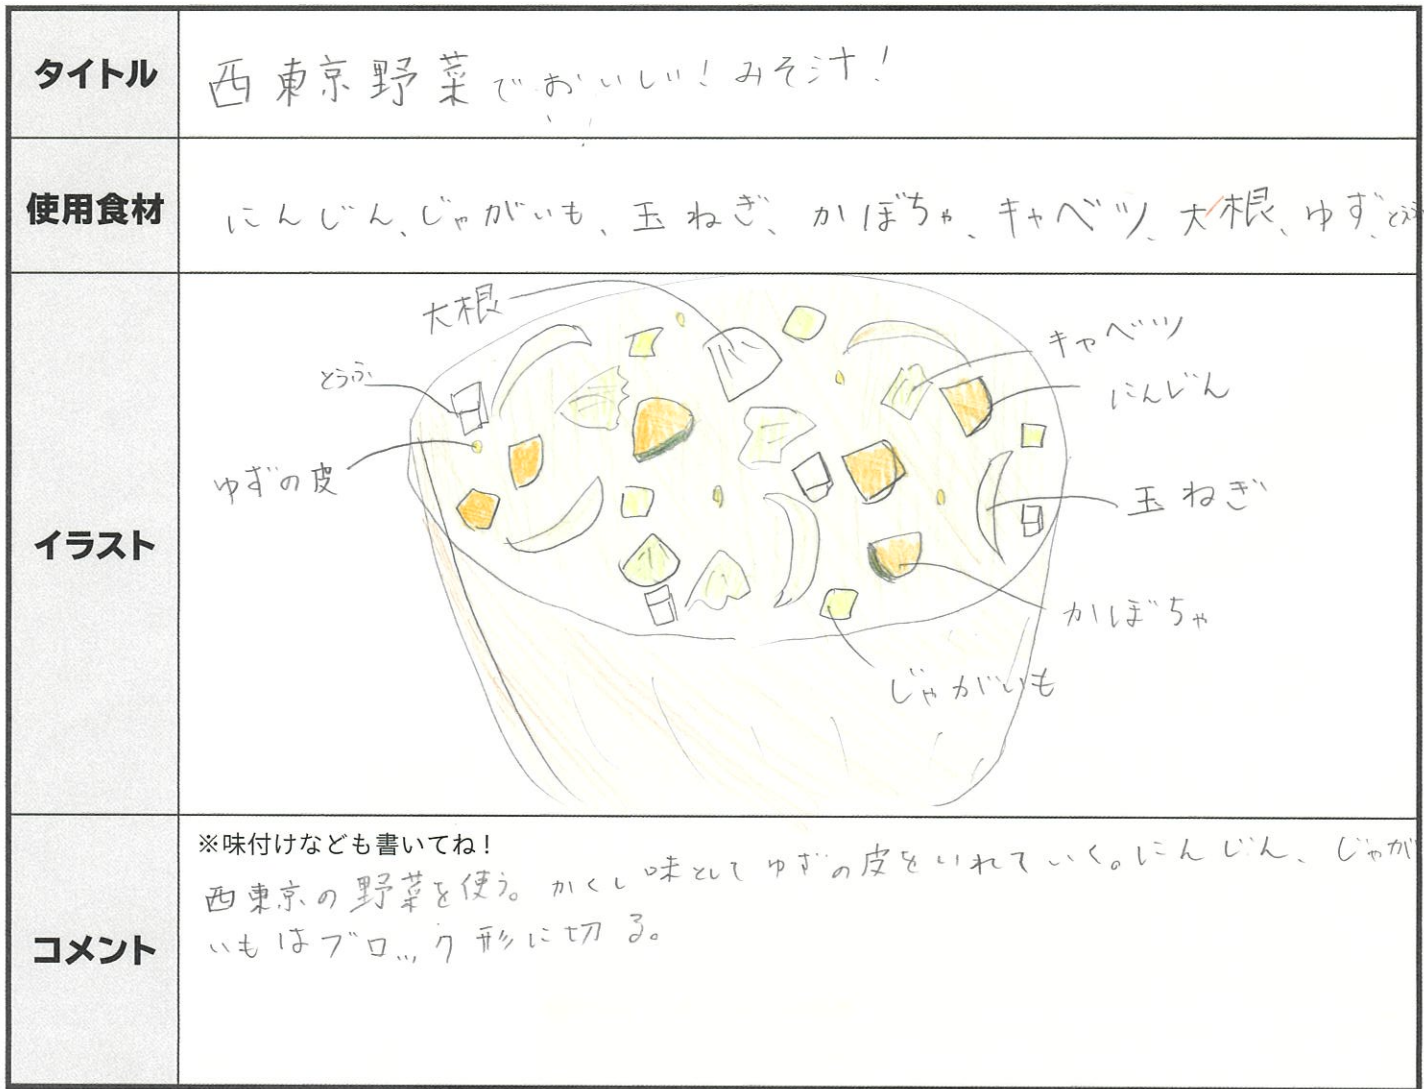 タイトル
西東京野菜でおいしい!みそ汁!
使用食材
にんじん、じゃがいも、玉ねぎ、かぼちゃ、キャベツ、大根、ゆず、とうふ
イラスト
大根
とうふ
ゆずの皮
キャベツ
にんじん
玉ねぎ
かぼちゃ
じゃがいも
コメント
※味付けなども書いてね!
西東京の野菜を使う。かくし味としてゆずの皮をいれていく。にんじん、じゃが
いもはブロック形に切る。